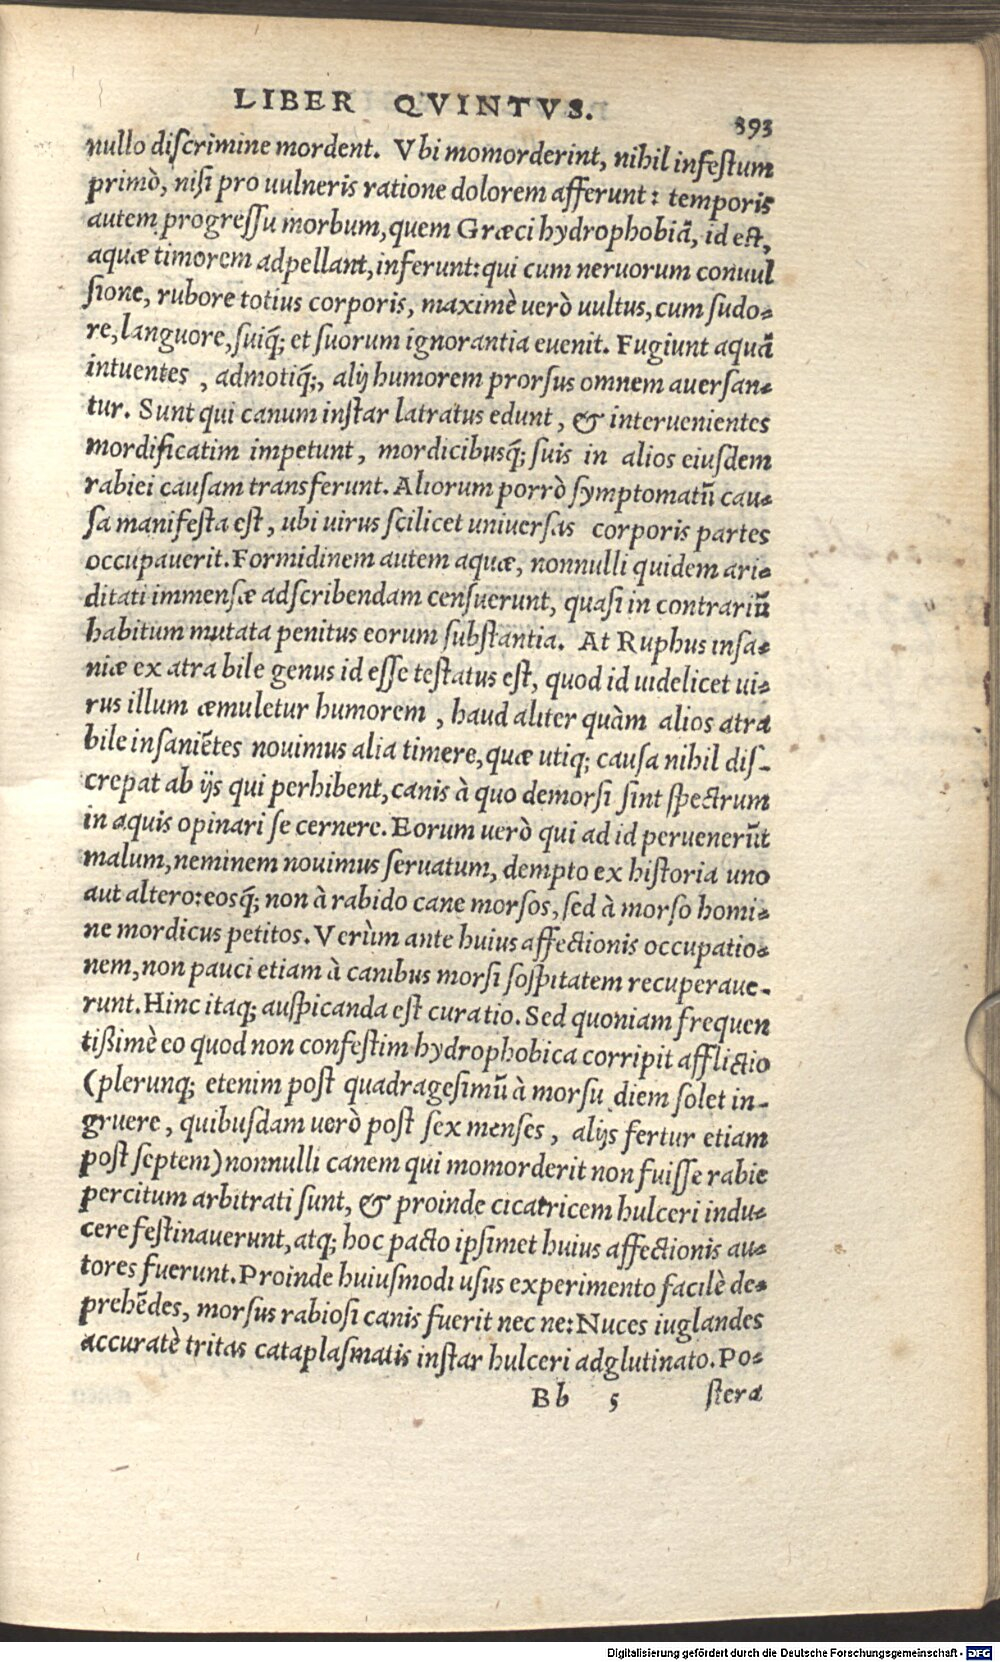 LIBER QVINTVS.
393
nullo diſcrimine mordent. Vbi momorderint, nihil infeſtum
primò, niſi pro uulneris ratione dolorem afferunt: temporis
autem progreſſu morbum, quem Græci hydrophobiā, id eſt,
aquæ timorem adpellant, inferunt: qui cum neruorum conuul
ſione, rubore totius corporis, maximè uerò uultus, cum ſudo-
re, languore, ſuiq́; et ſuorum ignorantia euenit. Fugiunt aquā
intuentes , admotiq́;, alij humorem prorſus omnem auerſan-
tur. Sunt qui canum inſtar latratus edunt , & interuenientes
mordificatim impetunt , mordicibusq́; ſuis in alios eiuſdem
rabiei cauſam transferunt. Aliorum porrò ſymptomatū cau-
ſa manifeſta eſt , ubi uirus ſcilicet uniuerſas corporis partes
occupauerit. Formidinem autem aquæ, nonnulli quidem ari-
ditati immenſæ adſcribendam cenſuerunt, quaſi in contrariū
habitum mutata penitus eorum ſubſtantia. At Ruphus inſa-
niæ ex atra bile genus id eſſe teſtatus eſt, quod id uidelicet ui-
rus illum æmuletur humorem , haud aliter quàm alios atra
bile inſaniētes nouimus alia timere, quæ utiq; cauſa nihil diſ-
crepat ab ijs qui perhibent, canis à quo demorſi ſint ſpectrum
in aquis opinari ſe cernere. Eorum uerò qui ad id peruenerūt
malum, neminem nouimus ſeruatum, dempto ex hiſtoria uno
aut altero: eosq́; non à rabido cane morſos, ſed à morſo homi-
ne mordicus petitos. Verùm ante huius affectionis occupatio-
nem, non pauci etiam à canibus morſi ſoſpitatem recuperaue-
runt. Hinc itaq; auſpicanda eſt curatio. Sed quoniam frequen
tißimè eo quod non confeſtim hydrophobica corripit afflictio
(plerunq; etenim poſt quadrageſimū à morſu diem ſolet in-
gruere , quibuſdam uerò poſt ſex menſes , alijs fertur etiam
poſt ſeptem) nonnulli canem qui momorderit non fuiſſe rabie
percitum arbitrati ſunt, & proinde cicatricem hulceri indu-
cere feſtinauerunt, atq; hoc pacto ipſimet huius affectionis au-
tores fuerunt. Proinde huiuſmodi uſus experimento facilè de-
prehēdes, morſus rabioſi canis fuerit nec ne: Nuces iuglandes
accuratè tritas cataplaſmatis inſtar hulceri adglutinato. Po-
Bb 5 ſtera
Digitalisierung gefördert durch die Deutsche Forschungsgemeinschaft - DFG